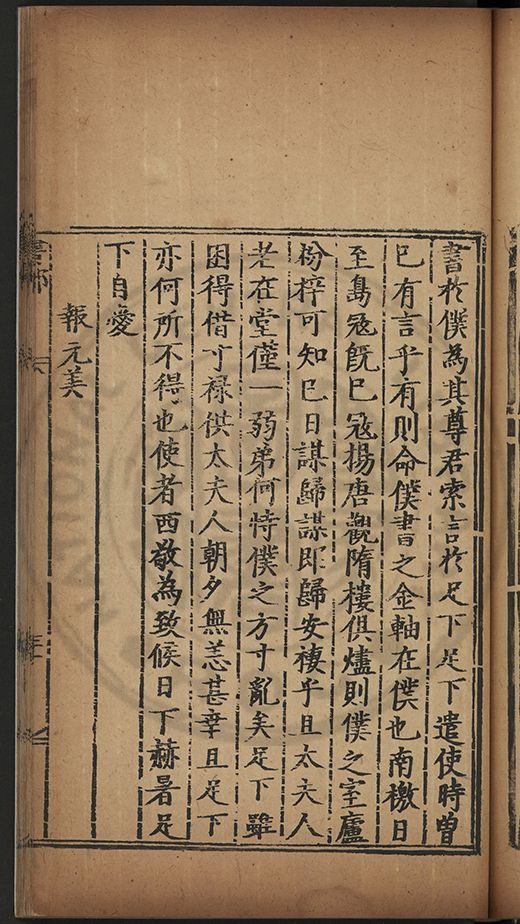 書於僕為其尊君索言於足下足下遣使時曾
已有言乎有則命僕書之金軸在僕也南檄日
至島寇既已寇揚唐觀隋樓俱燼則僕之室廬
枌梓可知已日謀歸謀即歸安棲乎且太夫人
老在堂僅一弱弟何恃僕之方寸亂矣足下雖
困得借寸祿供太夫人朝夕無恙甚幸且足下
亦何所不得也使者西敬為致候日下赫暑足
下自愛
報元美